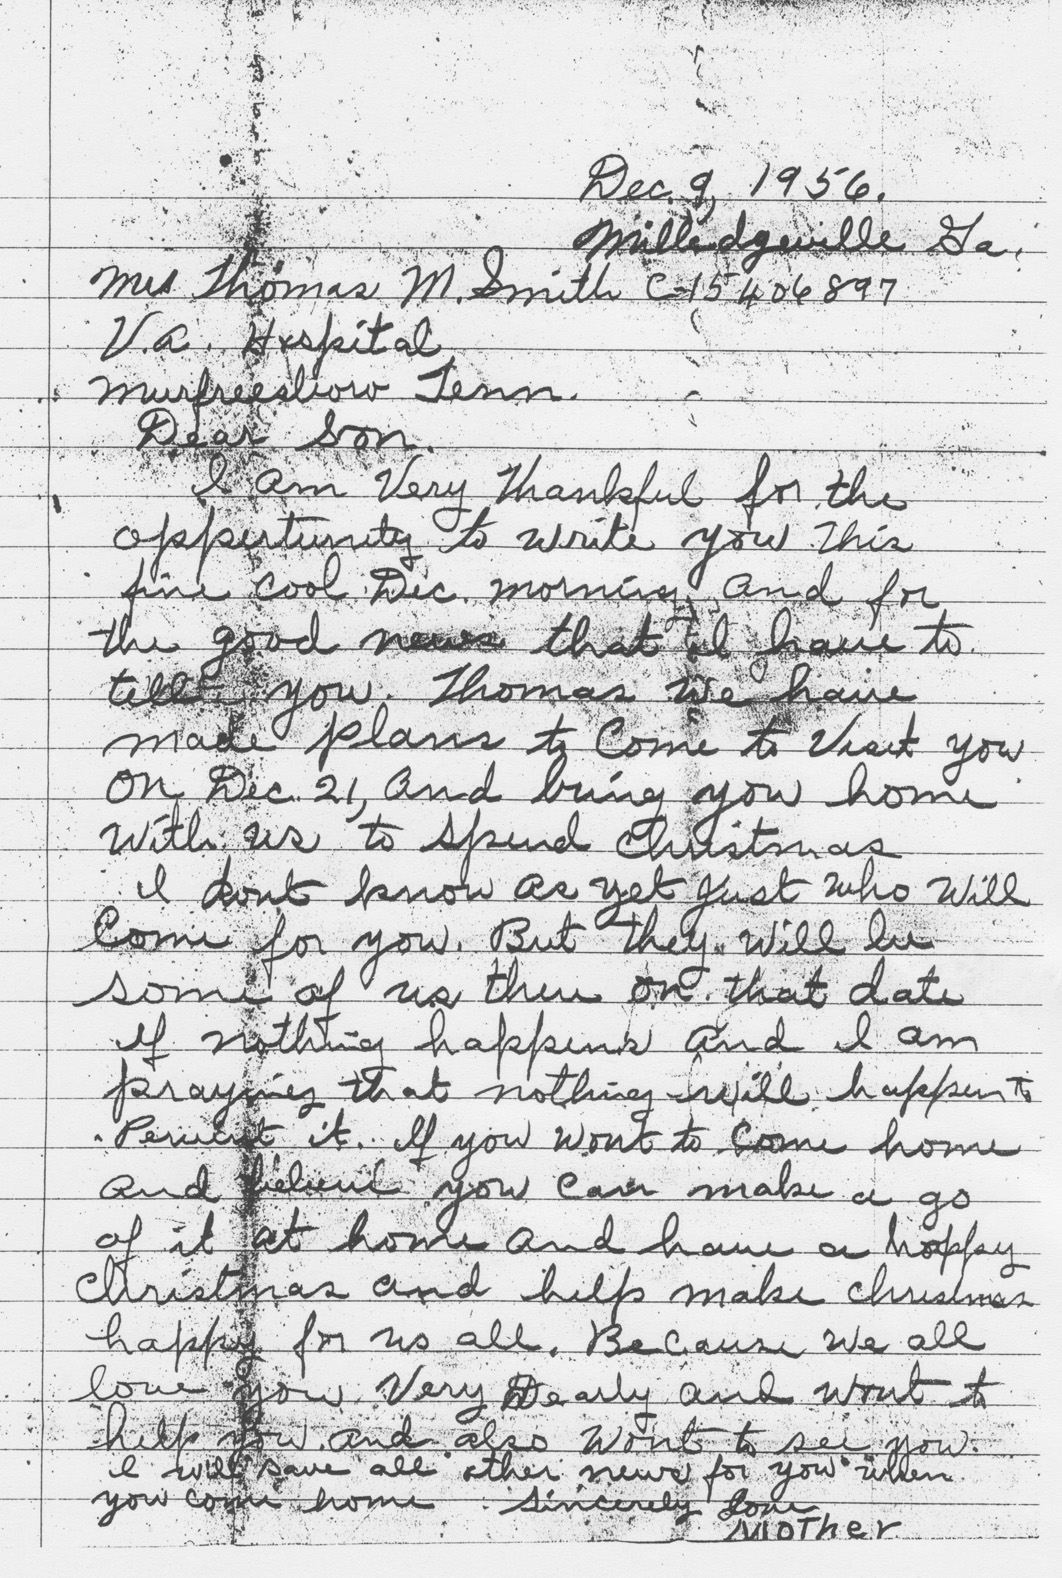 Dec. 9, 1956.
Milledgeville Ga.
Mr Thomas M. Smith C-15406897
V.a. Hospital
Murfreesboro Tenn.
Dear Son.
I am Very Thankful for the
oppertunity to write you this
fine cool Dec. morning and for
the good news that I have to
tell you. Thomas We have
made plans to Come to Visit you
On Dec. 21, and bring you home
With us to spend Christmas
I dont know as yet just who Will
Come for you. But they Will be
some of us there on that date
If nothing happens and I am
praying that nothing will happen to
Pervent it. If you Wont to Come home
and beleive you can make a go
of it at home and have a happy
Christmas and help make christmas
happy for us all. Because We all
love you Very Dearly and Wont to
help you and also Wont to see you.
I will save all other news for you when
you come home Sincerely Love
Mother